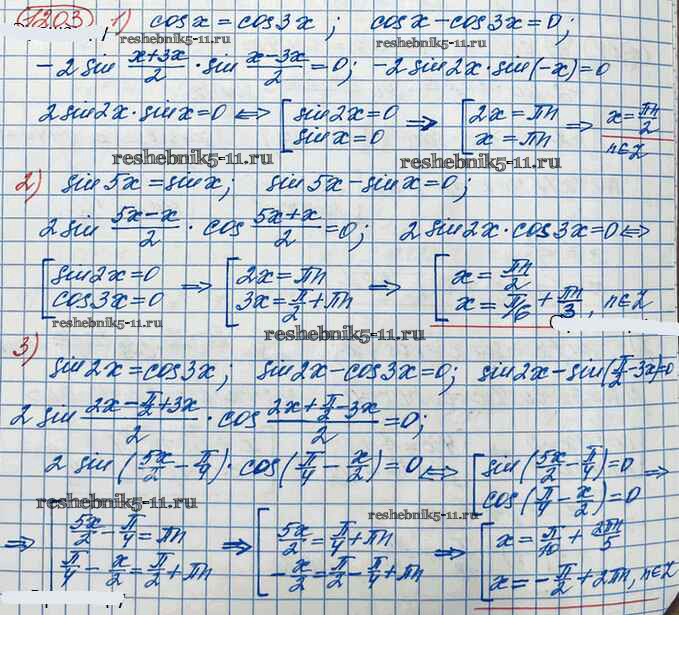 1203 1) cosx = cos3x ; cosx - cos3x = 0;
reshebnik5-11.ru
-2 sin (x+3x)/2 · sin (x-3x)/2 = 0; -2 sin2x · sin(-x) = 0
2 sin2x · sinx = 0 ⟺ [ sin2x = 0 sinx = 0 ⟹ [ 2x = πn x = πn ⟹ x = πn/2 n∈Z
reshebnik5-11.ru reshebnik5-11.ru
2) sin5x = sinx; sin5x - sinx = 0;
2 sin (5x-x)/2 · cos (5x+x)/2 = 0; 2 sin2x · cos3x = 0 ⟺
[ sin2x = 0 cos3x = 0 ⟹ [ 2x = πn 3x = π/2 + πn ⟹ [ x = πn/2 x = π/6 + πn/3, n∈Z
reshebnik5-11.ru reshebnik5-11.ru
3) sin2x = cos3x; sin2x - cos3x = 0; sin2x - sin(π/2 - 3x) = 0
2 sin (2x - π/2 + 3x)/2 · cos (2x + π/2 - 3x)/2 = 0;
2 sin(5x/2 - π/4) · cos(π/4 - x/2) = 0 ⟺ [ sin(5x/2 - π/4) = 0 cos(π/4 - x/2) = 0 ⟹
reshebnik5-11.ru reshebnik5-11.ru
⟹ [ 5x/2 - π/4 = πn π/4 - x/2 = π/2 + πn ⟹ [ 5x/2 = π/4 + πn -x/2 = π/2 - π/4 + πn ⟹ [ x = π/10 + 2πn/5 x = -π/2 + 2πn, n∈Z